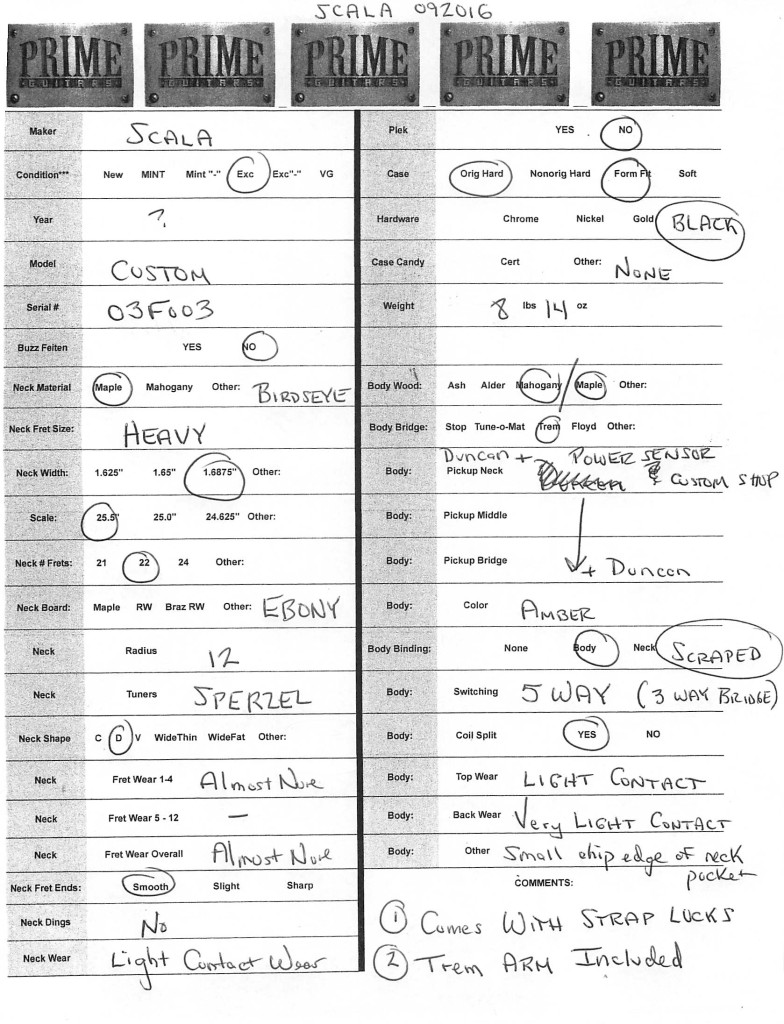 SCALA 092016
PRIME GUITARS PRIME GUITARS PRIME GUITARS PRIME GUITARS PRIME GUITARS
Maker SCALA
Condition*** New MINT Mint "-" Exc Exc"-" VG
Year ?
Model CUSTOM
Serial # 03F003
Buzz Feiten YES NO
Neck Material Maple Mahogany Other: BIRDSEYE
Neck Fret Size: HEAVY
Neck Width: 1.625" 1.65" 1.6875" Other:
Scale: 25.5" 25.0" 24.625" Other:
Neck # Frets: 21 22 24 Other:
Neck Board: Maple RW Braz RW Other: EBONY
Neck Radius 12
Neck Tuners SPERZEL
Neck Shape C D V WideThin WideFat Other:
Neck Fret Wear 1-4 Almost None
Neck Fret Wear 5 - 12 —
Neck Fret Wear Overall Almost None
Neck Fret Ends: Smooth Slight Sharp
Neck Dings No
Neck Wear Light Contact Wear
Plek YES NO
Case Orig Hard Nonorig Hard Form Fit Soft
Hardware Chrome Nickel Gold BLACK
Case Candy Cert Other: NONE
Weight 8 lbs 14 oz
Body Wood: Ash Alder Mahogany / Maple Other:
Body Bridge: Stop Tune-o-Mat Trem Floyd Other:
Duncan + POWER SENSOR
Body: Pickup Neck & CUSTOM SHOP
Body: Pickup Middle
Body: Pickup Bridge + Duncan
Body: Color AMBER
Body Binding: None Body Neck SCRAPED
Body: Switching 5 WAY (3 WAY BRIDGE)
Body: Coil Split YES NO
Body: Top Wear LIGHT CONTACT
Body: Back Wear Very LIGHT CONTACT
Body: Other Small chip edge of neck
pocket
COMMENTS:
1 Comes WITH STRAP LOCKS
2 Trem ARM Included